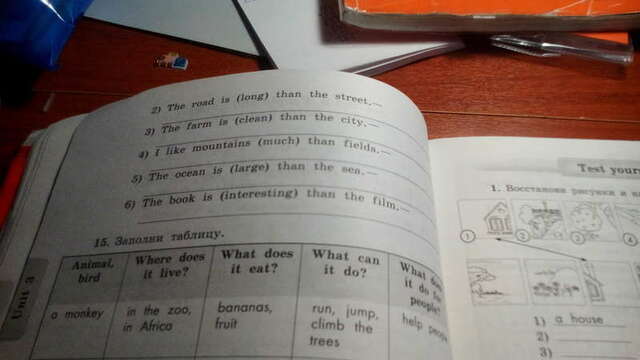 2) The road is (long) than the street.—
3) The farm is (clean) than the city.—
4) I like mountains (much) than fields.—
5) The ocean is (large) than the sea.—
6) The book is (interesting) than the film.—
15. Заполни таблицу.
Animal, bird
Where does it live?
What does it eat?
What can it do?
What it do for people?
a monkey
in the zoo, in Africa
bananas, fruit
run, jump, climb the trees
help
Unit 3
Test
1. Восстанови рисунки и
1
2
3
4
1) a house
2)
3)